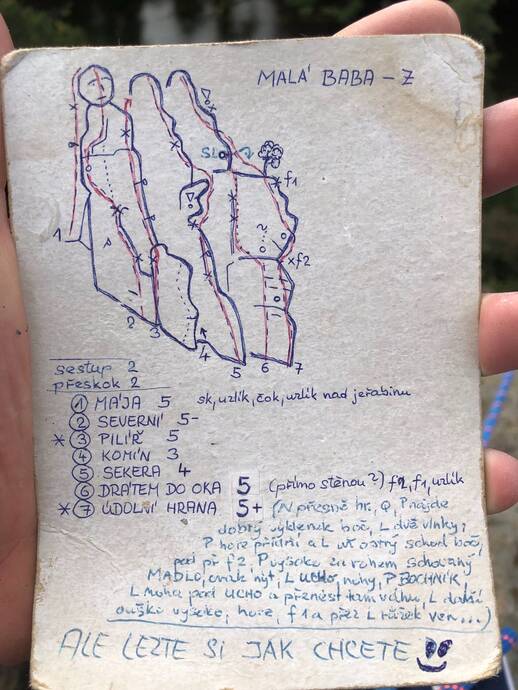 MALÁ BABA – Z
SLO
f1
f2
1
2
3
4
5
6
7
sestup 2
přeskok 2
① MÁJA 5 sk, uzlík, čok, uzlík nad jeřabinu
② SEVERNÍ 5-
* ③ PILÍŘ 5
④ KOMÍN 3
⑤ SEKERA 4
⑥ DRÁTEM DO OKA 5 (přímo stěnou?) f2, f1, uzlík
* ⑦ ÚDOLNÍ HRANA 5+ (N přesně hr., Q, P najde
dobrý výklenek boč, L dvě vlnky,
P hoře přídrži a L už ostrý schod boč,
pod př f2. P vysoko za rohem schovaný
MADLO, cvak nýt, L UCHO, nohy, P BOCHNÍK,
L noha pod UCHO a přenést tam váhu, L další
ouško vysoko, hoře, f1 a přez L růžek ven...)
ALE LEZTE SI JAK CHCETE